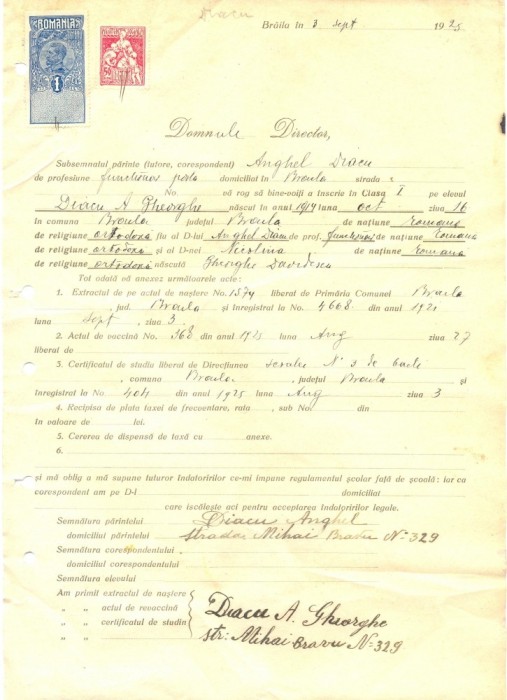 Diacu
Brăila în 3 Sept 1925
ROMANIA
1
50
Domnule Director,
Subsemnatul părinte (tutore, corespondent) Anghel Diacu
de profesiune functionar domiciliat în Braila strada
No. vă rog să bine-voiți a înscrie în Clasa I pe elevul
Diacu A Gheorghe născut în anul 1914 luna oct ziua 16
în comuna Braila județul Braila de națiune Romana
de religiune ortodoxa fiu al D-lui Anghel Diacu de prof. functionar de națiune Romana
de religiune ortodoxă și al D-nei Nicolina de națiune Romana
de religiune ortodoxă născută Gheorghe Davidescu
Tot odată vă anexez următoarele acte:
1. Extractul de pe actul de naștere No. 1574 liberat de Primăria Comunei Braila
, jud. Braila și înregistrat la No. 4668 din anul 192
luna Sept, ziua 3
2. Actul de vaccină No. 368 din anul 1925 luna Aug ziua 27
liberat de
3. Certificatul de studiu liberat de Direcțiunea N 3 de
, comuna Braila, județul Braila și
înregistrat la No. 404 din anul 1925 luna Aug ziua 3
4. Recipisa de plata taxei de frecventare, rata , sub No. din
în valoare de lei.
5. Cererea de dispensă de taxă cu anexe.
6.
și mă oblig a mă supune tuturor îndatoririlor ce-mi impune regulamentul școlar față de școală: iar ca
corespondent am pe D-l domiciliat
care iscălește aci pentru acceptarea îndatoririlor legale.
Semnătura părintelui Diacu Anghel
domiciliul părintelui strada Mihai Bravu No 329
Semnătura corespondentului
domiciliul corespondentului
Semnătura elevului
Am primit extractul de naștere
„ „ actul de revaccină Diacu A. Gheorghe
„ „ certificatul de studiu str: Mihai Bravu No: 329